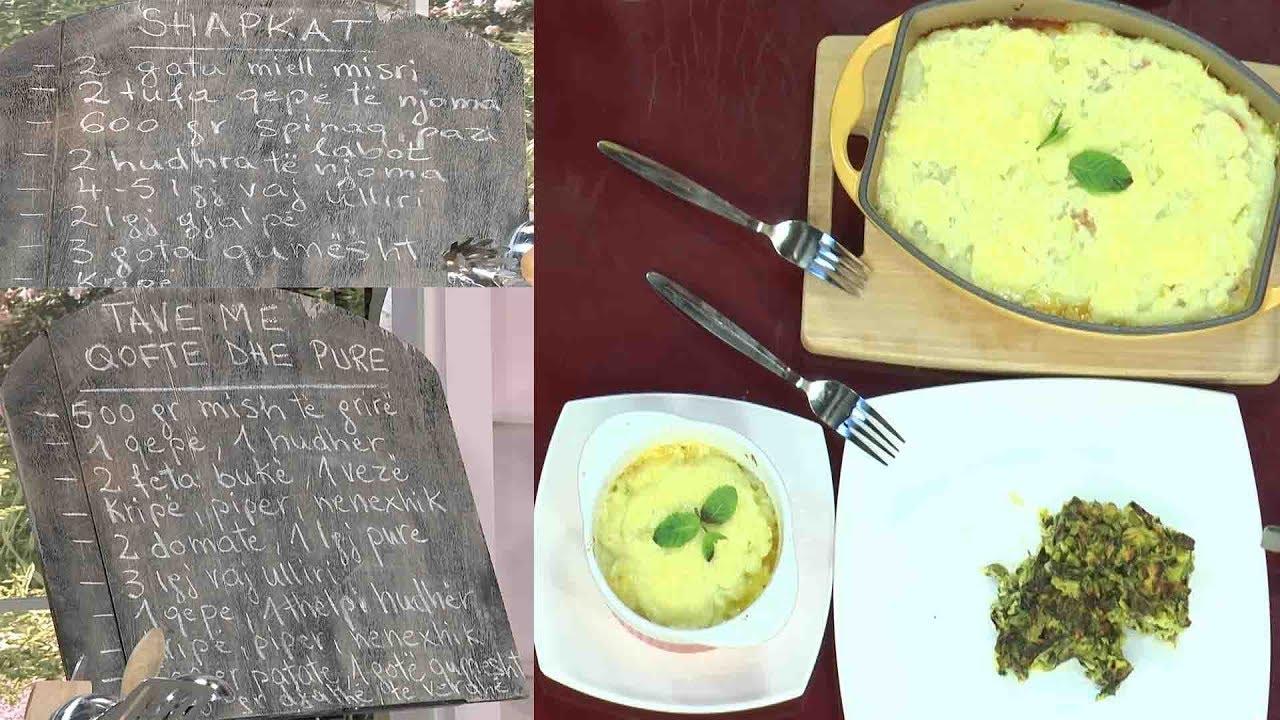 SHAPKAT
- 2 gota miell misri
- 2 tufa qepë të njoma
- 600 gr spinaq, pazi
labot
- 2 hudhra të njoma
- 4-5 lgj vaj ulliri
- 2 lgj gjalpë
- 3 gota qumësht
- Kripë
TAVE ME
QOFTE DHE PURE
- 500 gr mish të grirë
- 1 qepë, 1 hudhër
- 2 feta bukë, 1 vezë
- Kripë, piper, nenexhik
- 2 domate, 1 lgj pure
- 3 lgj vaj ulliri
- 1 qepe, 1 thelpi hudhër
- kripë, piper, nenexhik
patate, 1 gotë qumësht
gr djathë të verdhë